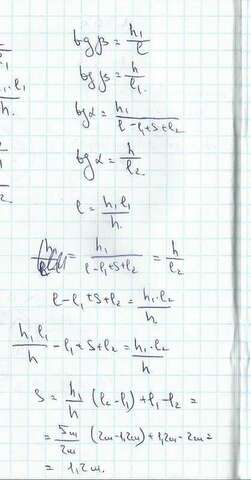 tg β = h₁/l
tg β = h/l₁
tg α = h₁/(l-l₁+S+l₂)
tg α = h/l₂
l = h₁l₁/h
= h₁/(l-l₁+S+l₂) = h/l₂
l-l₁+S+l₂ = h₁·l₂/h
h₁l₁/h - l₁+S+l₂ = h₁·l₂/h
S = h₁/h (l₂-l₁)+l₁-l₂ =
= 5m/2m (2m-1,2m)+1,2m-2m=
= 1,2m.